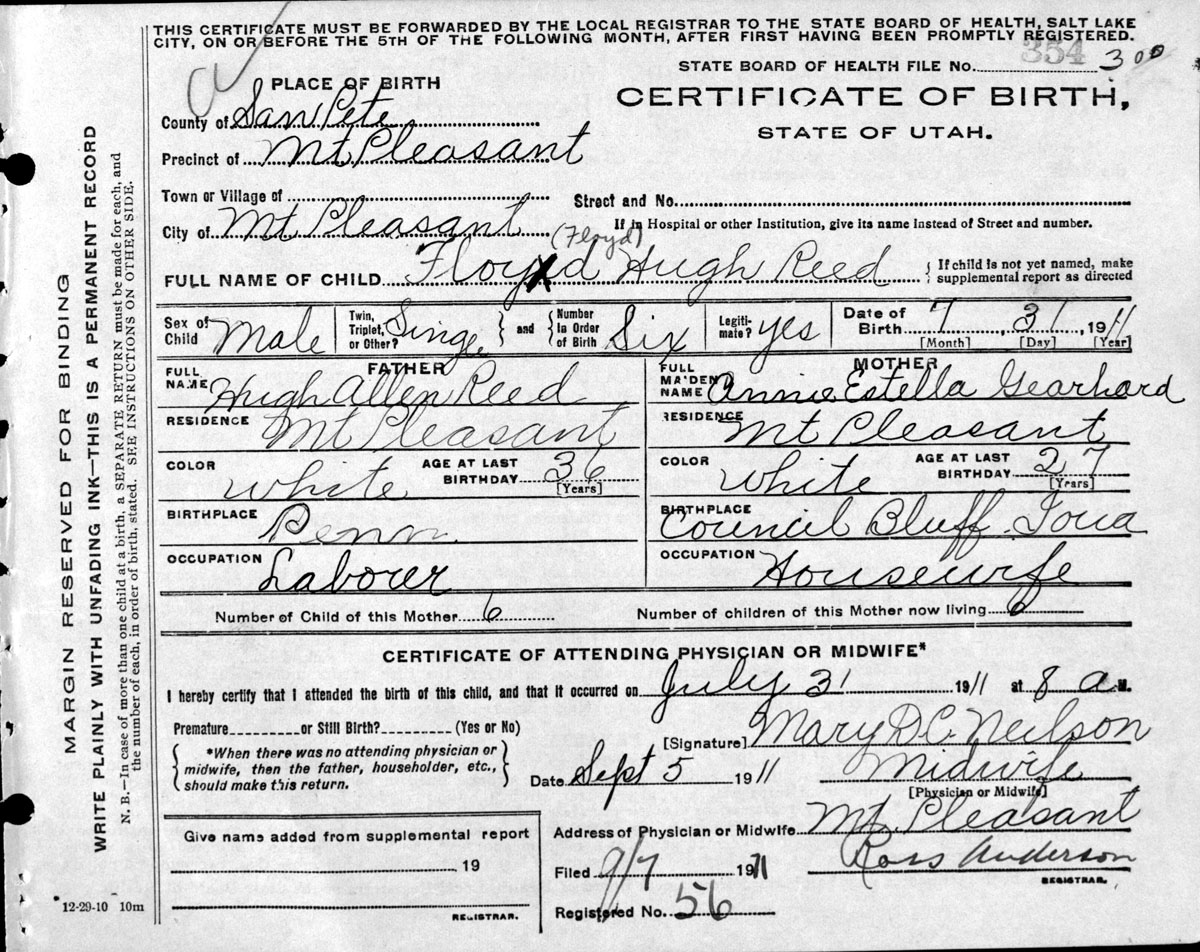 THIS CERTIFICATE MUST BE FORWARDED BY THE LOCAL REGISTRAR TO THE STATE BOARD OF HEALTH, SALT LAKE
CITY, ON OR BEFORE THE 5TH OF THE FOLLOWING MONTH, AFTER FIRST HAVING BEEN PROMPTLY REGISTERED.
354
STATE BOARD OF HEALTH FILE No. 300
PLACE OF BIRTH
CERTIFICATE OF BIRTH,
STATE OF UTAH.
County of San Pete
Precinct of Mt Pleasant
Town or Village of
Street and No.
City of Mt Pleasant
If in Hospital or other Institution, give its name Instead of Street and number.
(Floyd)
FULL NAME OF CHILD Floyd Hugh Reed
If child is not yet named, make
supplemental report as directed
Sex of Child Male
Twin, Triplet, or Other? Single
and
Number In Order of Birth Six
Legiti-mate? yes
Date of Birth 7, 31, 1911
[Month] [Day] [Year]
FATHER
FULL NAME Hugh Allen Reed
RESIDENCE Mt Pleasant
COLOR White
AGE AT LAST BIRTHDAY 36
[Years]
BIRTHPLACE Penn
OCCUPATION Laborer
MOTHER
FULL MAIDEN NAME Annie Estella Gearhard
RESIDENCE Mt Pleasant
COLOR White
AGE AT LAST BIRTHDAY 27
[Years]
BIRTHPLACE Council Bluff Ioua
OCCUPATION Housewife
Number of Child of this Mother 6
Number of children of this Mother now living 6
CERTIFICATE OF ATTENDING PHYSICIAN OR MIDWIFE*
I hereby certify that I attended the birth of this child, and that it occurred on July 31 1911 at 8 a M.
Premature or Still Birth? (Yes or No)
*When there was no attending physician or
midwife, then the father, householder, etc.,
should make this return.
[Signature] Mary D C Neilson
Date Sept 5 1911
Midwife
[Physician or Midwife]
Give name added from supplemental report
19
REGISTRAR.
Address of Physician or Midwife Mt Pleasant
Filed 9/7 1911
Ross Anderson
REGISTRAR.
Registered No. 56
12-29-10 10m
MARGIN RESERVED FOR BINDING
WRITE PLAINLY WITH UNFADING INK—THIS IS A PERMANENT RECORD
N. B.—In case of more than one child at a birth, a SEPARATE RETURN must be made for each, and
the number of each, in order of birth, stated. SEE INSTRUCTIONS ON OTHER SIDE.